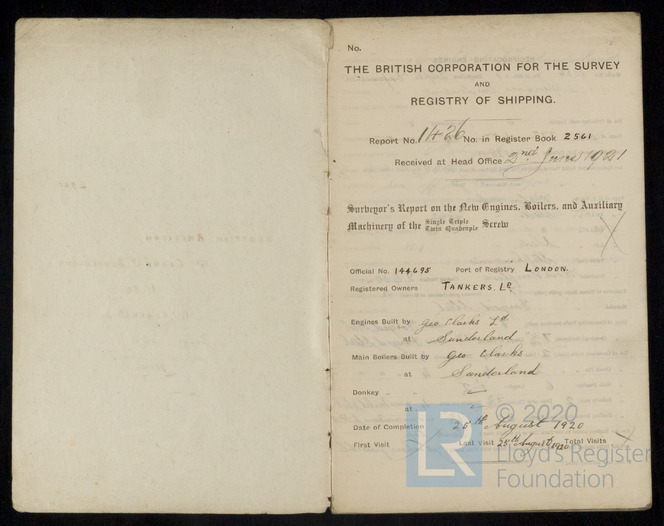 No.
THE BRITISH CORPORATION FOR THE SURVEY
AND
REGISTRY OF SHIPPING.
Report No. 1426 No. in Register Book 2561
Received at Head Office 2nd June 1921
Surveyor's Report on the New Engines, Boilers, and Auxiliary
Machinery of the Single Triple Twin Quadruple Screw
Official No. 144695 Port of Registry LONDON.
Registered Owners TANKERS, Ld.
Engines Built by Geo Clarks Ld
at Sunderland
Main Boilers Built by Geo Clarks
at Sunderland
Donkey "
at "
Date of Completion 25th August 1920
First Visit Last Visit 25th August 1920 Total Visits
LR
© 2020
Lloyd's Register
Foundation